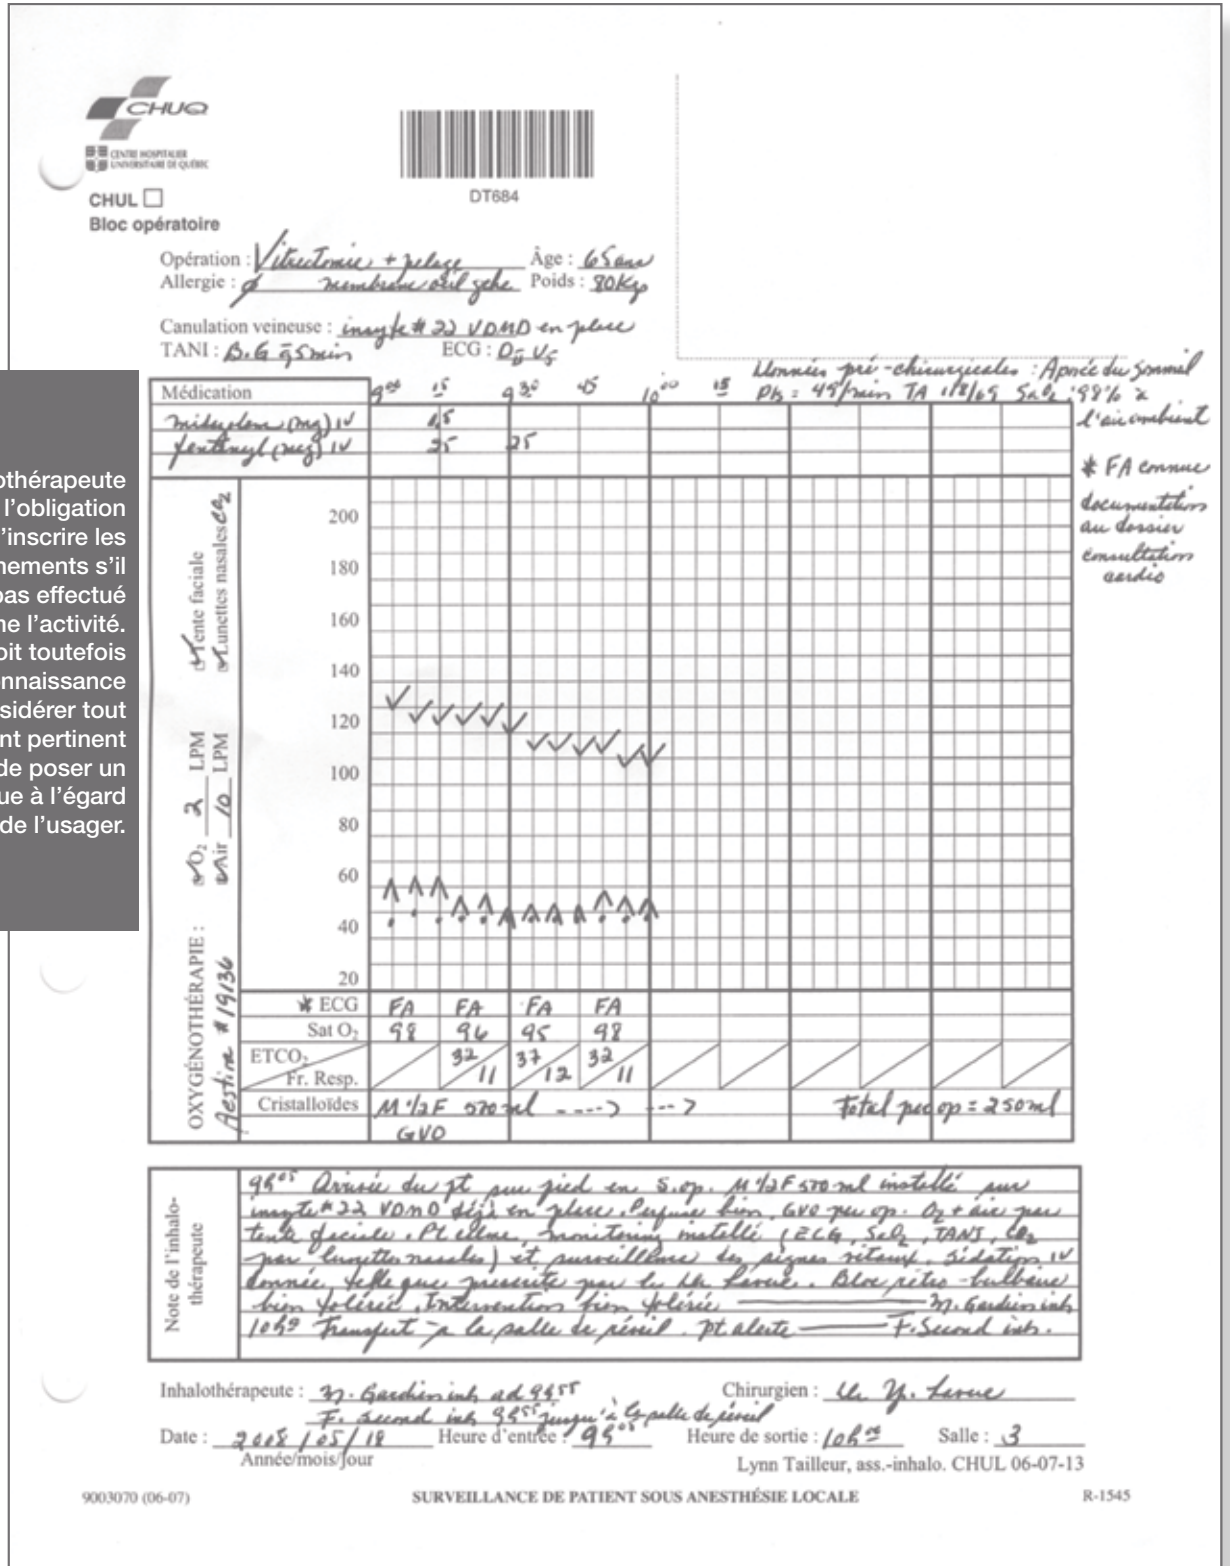 CHUQ
CENTRE HOSPITALIER
UNIVERSITAIRE DE QUÉBEC
CHUL
Bloc opératoire
DT684
Opération : Vitrectomie + pelage Âge : 65 ans
Allergie : ø membrane œil gche Poids : 80 Kgs
Canulation veineuse : insyte # 22 VDMD en place
TANI : B.G q̄ 5 min ECG : DII V5
Données pré-chirurgicales : Apnée du sommeil
Pls = 49/min TA 118/69 SaO2 : 98% à
l'air ambiant
* FA connue
documentation
au dossier
consultation
cardio
Médication 9 00 15 9 30 45 10 00 15
midazolam (mg) IV
fentanyl (mcg) IV 25 25
othérapeute
l'obligation
'inscrire les
nements s'il
pas effectué
ne l'activité.
oit toutefois
nnaissance
sidérer tout
nt pertinent
de poser un
ue à l'égard
de l'usager.
OXYGÉNOTHÉRAPIE : O2 2 LPM Tente faciale
Air 10 LPM Lunettes nasales CO2
Aestiva # 19136
200
180
160
140
120
100
80
60
40
20
* ECG FA FA FA FA
Sat O2 98 96 95 98
ETCO2 32 37 32
Fr. Resp. 11 12 11
Cristalloïdes M 1/2 F 570 ml ----> ---> Total per op = 250 ml
GVO
Note de l'inhalo-
thérapeute
9h05 Arrivée du pt sur pied en S.op. M 1/2 F 570 ml installé sur
insyte # 22 VDMD déjà en place. Perfuse bien, GVO per op. O2 + air par
tente faciale. Pt calme, monitoring installé (ECG, SaO2, TANI, CO2
par lunettes nasales) et surveillance des signes vitaux. Sédation IV
donnée telle que prescrite par le Dr Lavue. Bloc rétro-bulbaire
bien toléré. Intervention bien tolérée M. Gardien inh
10h00 Transfert à la salle de réveil. Pt alerte F. Second inh.
Inhalothérapeute : M. Gardien inh ad 9h55 Chirurgien : Dr Y.
F. Second inh 9h55 jusqu'à la salle de réveil
Date : 2008/05/18 Heure d'entrée : 9h05 Heure de sortie : 10h00 Salle : 3
Année/mois/jour
Lynn Tailleur, ass.-inhalo. CHUL 06-07-13
9003070 (06-07) SURVEILLANCE DE PATIENT SOUS ANESTHÉSIE LOCALE R-1545